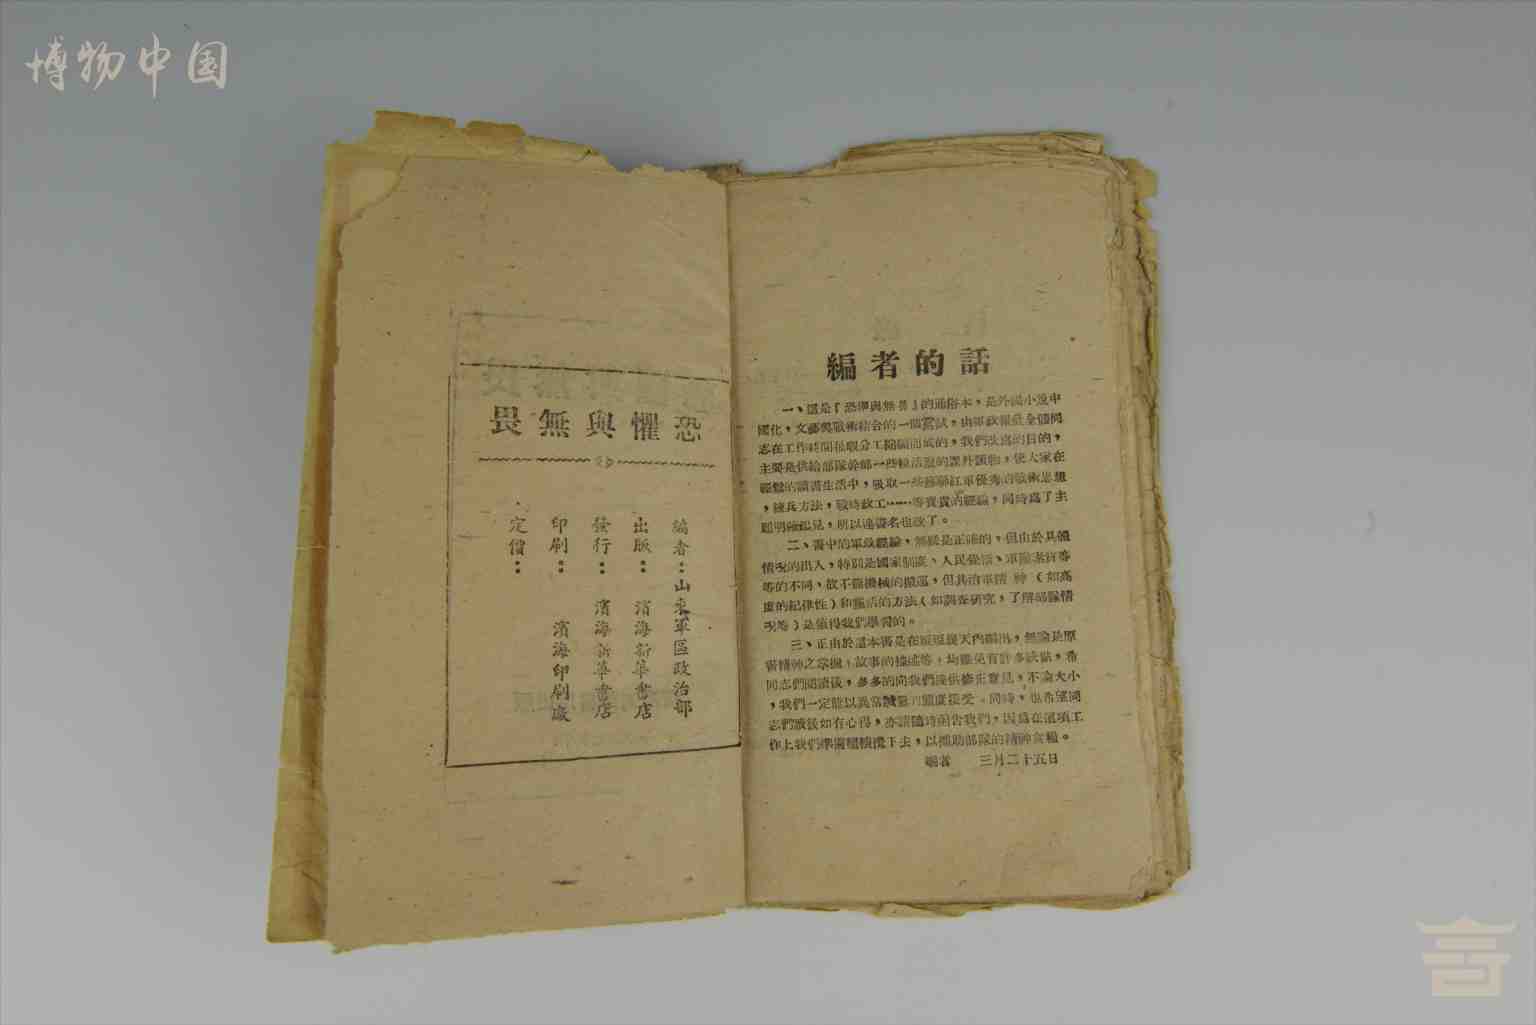 博物中国
恐懼與無畏
編者：山東軍區政治部
出版：濱海新華書店
發行：濱海新華書店
印刷：濱海印刷廠
定價：
編者的話
一、這是『恐懼與無畏』的通俗本，是外國小說中
國化，文藝與戰術結合的一個嘗試，由軍政報社全體同
志在工作時間抽暇分工編寫而成的，我們改寫的目的，
主要是供給部隊幹部一些較活潑的課外讀物，使大家在
輕鬆的讀書生活中，吸取一些蘇聯紅軍優秀的戰術思想
，練兵方法，戰時政工……等寶貴的經驗，同時為了主
題明確起見，所以連書名也改了。
二、書中的軍政經驗，無疑是正確的，但由於具體
情況的出入，特別是國家制度、人民生活、軍隊素質等
等的不同，故不能機械的搬運，但其治軍精神（如高
度的紀律性）和靈活的方法（如調查研究，了解部隊情
況等）是值得我們學習的。
三、正由於這本書是在短短幾天內編出，無論是原
著精神之掌握，故事的描述等，均難免有許多缺點，希
同志們閱讀後，多多的向我們提供修正意見，不論大小
，我們一定能以異常誠懇的態度接受。同時，也希望同
志們讀後如有心得，亦請隨時函告我們，因為在這項工
作上我們準備繼續攪下去，以補助部隊的精神食糧。
編者 三月二十五日